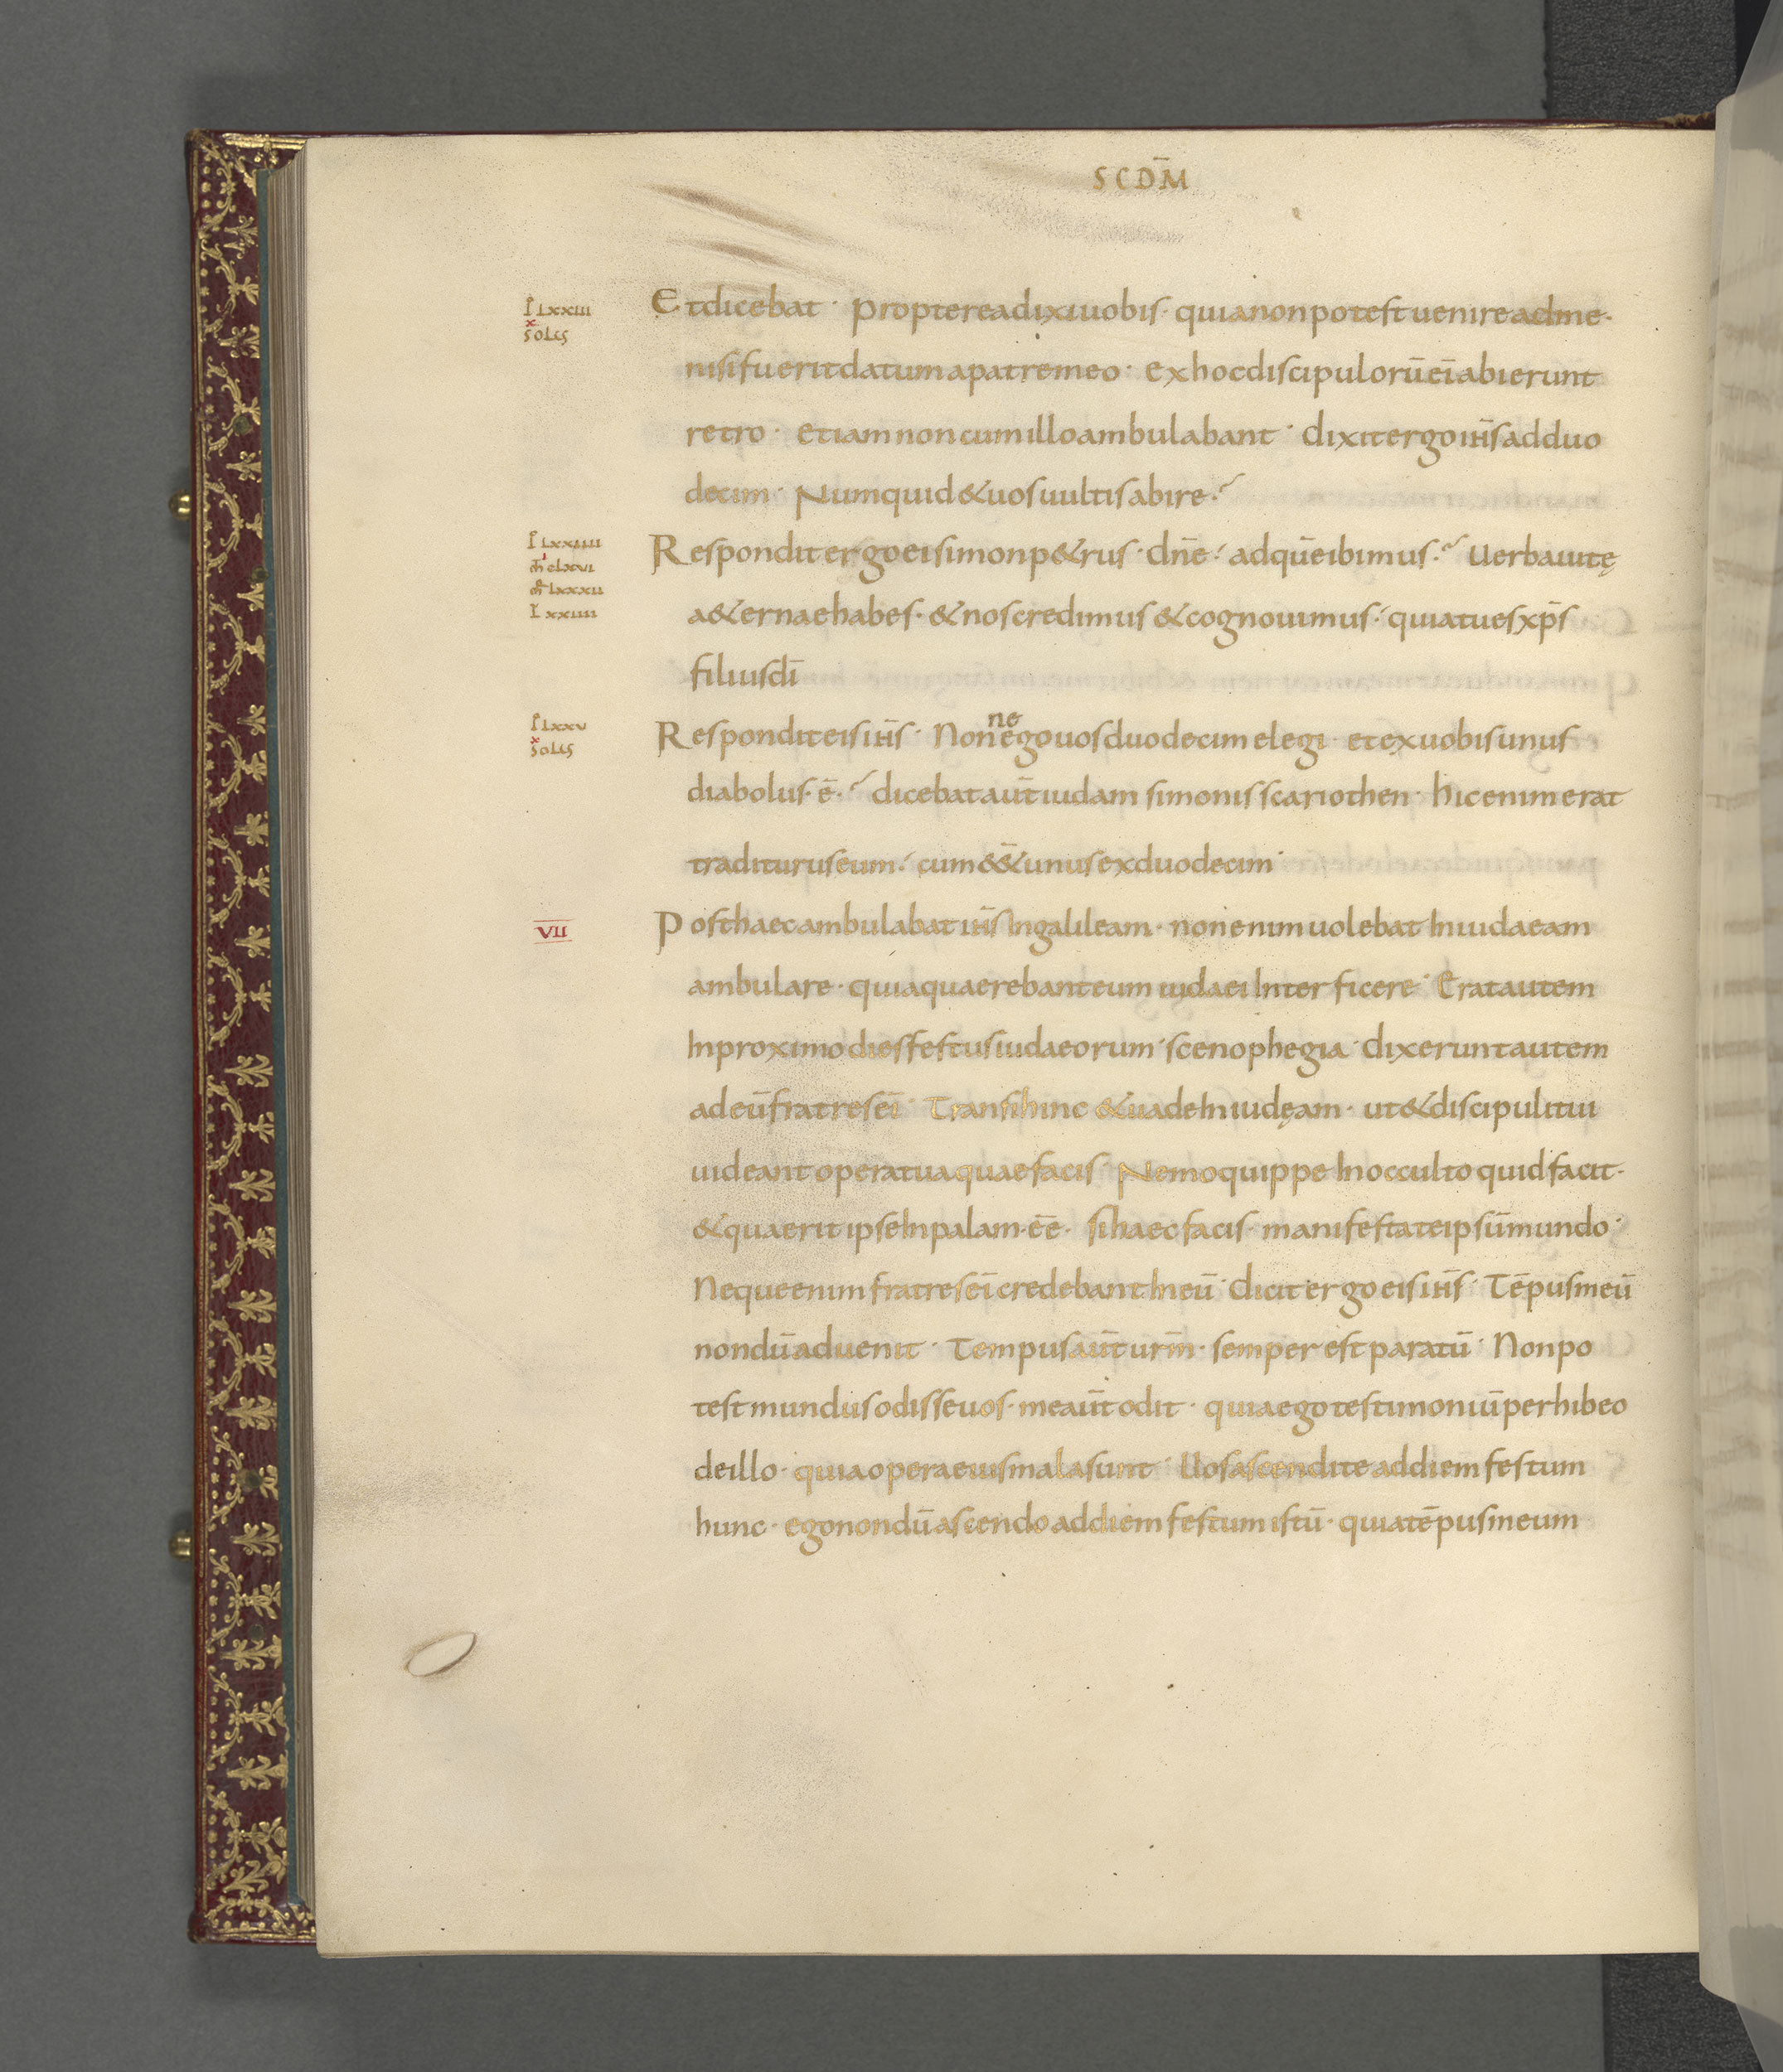 SCDM̄
Et dicebat · propterea dixi uobis · quia non potest uenire ad me ·
nisi fuerit datum a patre meo · ex hoc discipulorū eī abierunt
retro · et iam non cum illo ambulabant · dixit ergo ih̄s ad duo
decim · Numquid & uos uultis abire ?
Respondit ergo ei simon p&rus · dn̄e · ad quē ibimus ? Uerba uitę
a&ernae habes · & nos credimus & cognouimus · quia tu es xp̄s
filius dī
Respondit eis ih̄s · Nonne ego uos duodecim elegi · et ex uobis unus
diabolus · ē · ? dicebat aūt iudam simonis scariothen · hic enim erat
traditurus eum · cum e͞e& unus ex duodecim ·
Post haec ambulabat ih̄s In galileam · non enim uolebat In iudaeam
ambulare · quia quaerebant eum iudaei Interficere · Erat autem
In proximo dies festus iudaeorum · scenophegia · dixerunt autem
ad eū fratres eī · Transi hinc & uade In iudęam · ut & discipuli tui
uideant opera tua quae facis · Nemo quippe In occulto quid facit ·
& quaerit ipse In palam · ēē · si haec facis · manifesta te ipsū mundo ·
Neque enim fratres eī credebant In eū · dicit ergo eis ih̄s · Tēpus meū
nondū aduenit · Tempus aūt urm̄ · semper est paratū · Non po
test mundus odisse uos · me aūt odit · quia ego testimoniū perhibeo
de illo · quia opera eius mala sunt · Uos ascendite ad diem festum
hunc · ego nondū ascendo ad diem festum istū · quia tēpus meum
I LXXIII
x
solus
I LXXIIII
I
m̄ clxvi
m̄r lxxxii
L xxiiii
I LXXV
x
solus
VII